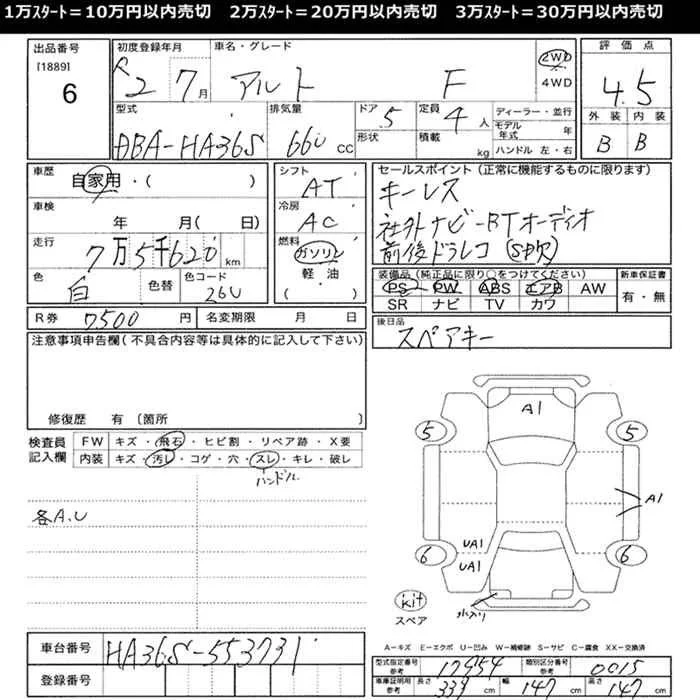 1万ｽﾀｰﾄ＝10万円以内売切　2万ｽﾀｰﾄ＝20万円以内売切　3万ｽﾀｰﾄ＝30万円以内売切
出品番号
[1889]
6
初度登録年月
R2 7月
車名・グレード
アルト F
2WD
4WD
評価点
4.5
外装 内装
B B
型式
DBA-HA36S
排気量
660 CC
ドア
5
形状
定員
4人
積載
kg
ディーラー・並行
モデル年式 年
ハンドル 左・右
車歴
自家用・( )
車検
年 月( 日)
走行
7万5千620 km
色
白
色替
色コード
26U
シフト
AT
冷房
AC
燃料
ガソリン
軽・油
( )
セールスポイント（正常に機能するものに限ります）
キーレス
社外ナビ-BTオーディオ
前後ドラレコ
装備品（純正品に限り○をつけてください）
PS PW ABS エアB AW
SR ナビ TV カワ
新車保証書
有・無
R券 7500 円
名変期限 月 日
後日品
スペアキー
注意事項申告欄（不具合内容等は具体的に記入して下さい）
修復歴 有〔箇所 〕
検査員記入欄
FW キズ・飛石・ヒビ割・リペア跡・X要
内装 キズ・汚レ・コゲ・穴・スレ・キレ・破レ
ハンドル
各A.U
A1
5 5
A1
UA1
UA1
6 6
kit
スペア
A＝キズ E＝エクボ U＝凹み W＝補修跡 S＝サビ C＝腐食 XX＝交換済
車台番号 HA36S-553731
登録番号
型式指定番号 参考 17454
類別区分番号 参考 0015
車庫証明用 参考 長さ 339 cm 幅 147 cm 高さ 147 cm